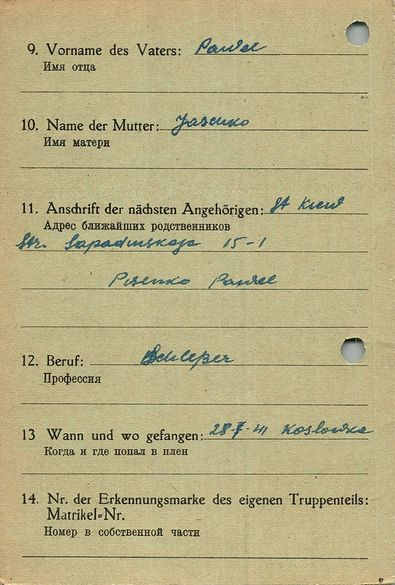 9. Vorname des Vaters: Pawel
Имя отца
10. Name der Mutter: Jasenko
Имя матери
11. Anschrift der nächsten Angehörigen: St Kiew
Адрес ближайших родственников
Str. Sapadinskaja 15-1
Pisenko Pawel
12. Beruf: Schloßer
Профессия
13 Wann und wo gefangen: 41 Koslowka
Когда и где попал в плен
14. Nr. der Erkennungsmarke des eigenen Truppenteils:
Matrikel-Nr.
Номер в собственной части